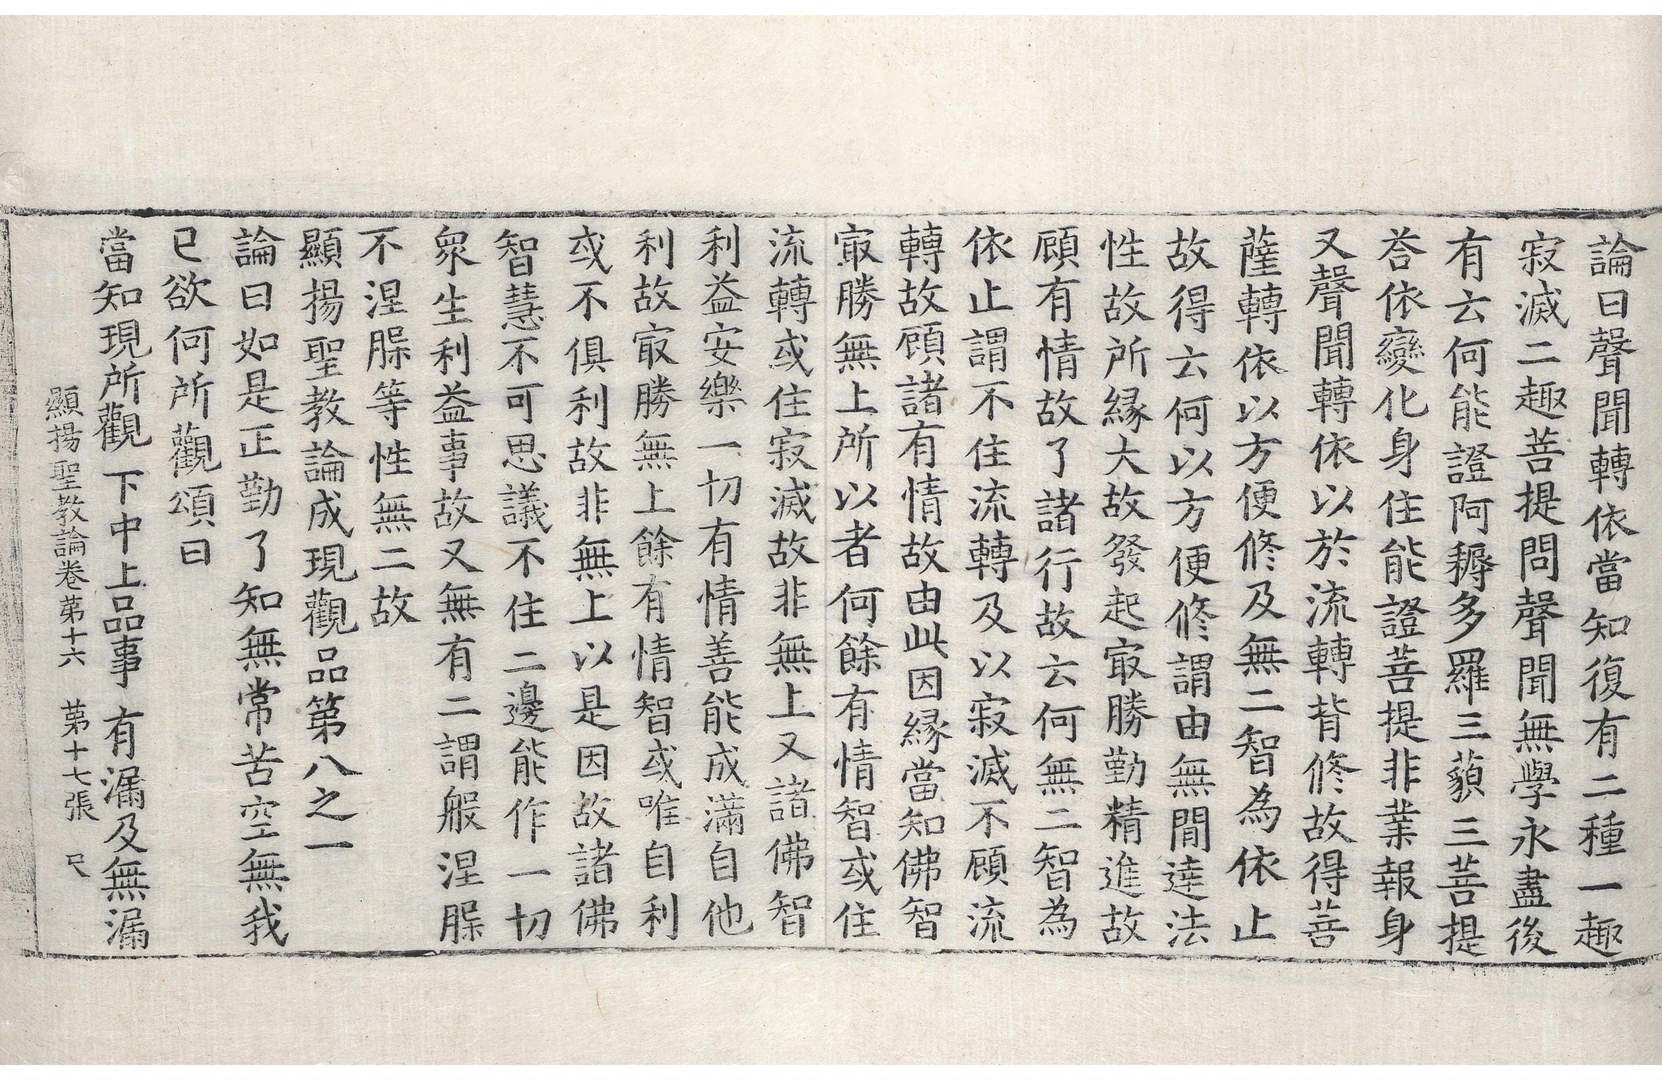 論曰聲聞轉依當知復有二種一趣
寂滅二趣菩提問聲聞無學永盡後
有云何能證阿耨多羅三藐三菩提
荅依變化身住能證菩提非業報身
又聲聞轉依以於流轉背修故得菩
薩轉依以方便修及無二智為依止
故得云何以方便修謂由無間達法
性故所緣大故發起㝡勝勤精進故
顧有情故了諸行故云何無二智為
依止謂不住流轉及以寂滅不顧流
轉故顧諸有情故由此因緣當知佛智
㝡勝無上所以者何餘有情智或住
流轉或住寂滅故非無上又諸佛智
利益安樂一切有情善能成滿自他
利故㝡勝無上餘有情智或唯自利
或不俱利故非無上以是因故諸佛
智慧不可思議不住二邊能作一切
衆生利益事故又無有二謂般涅槃
不涅槃等性無二故
顯揚聖教論成現觀品第八之一
論曰如是正勤了知無常苦空無我
已欲何所觀頌曰
當知現所觀 下中上品事 有漏及無漏
顯揚聖教論卷第十六 第十七張 尺